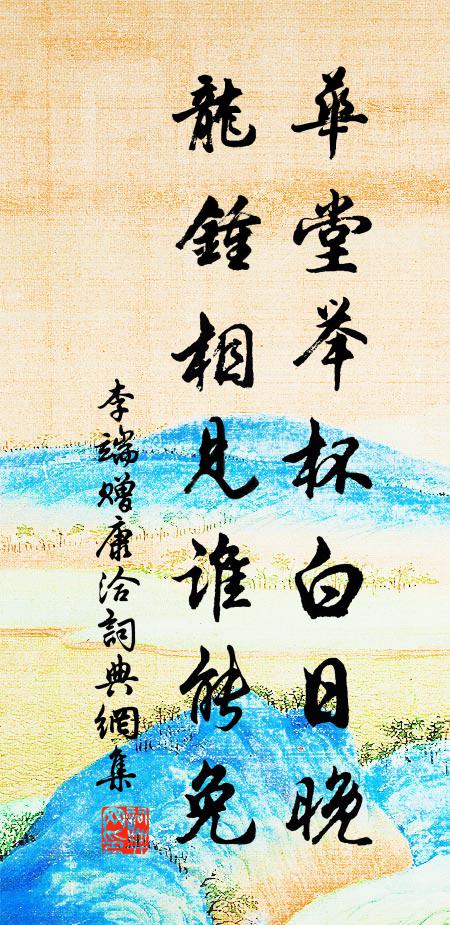 華堂举杯白日晚
龍鍾相見誰能免
李端贈康洽詞典網集